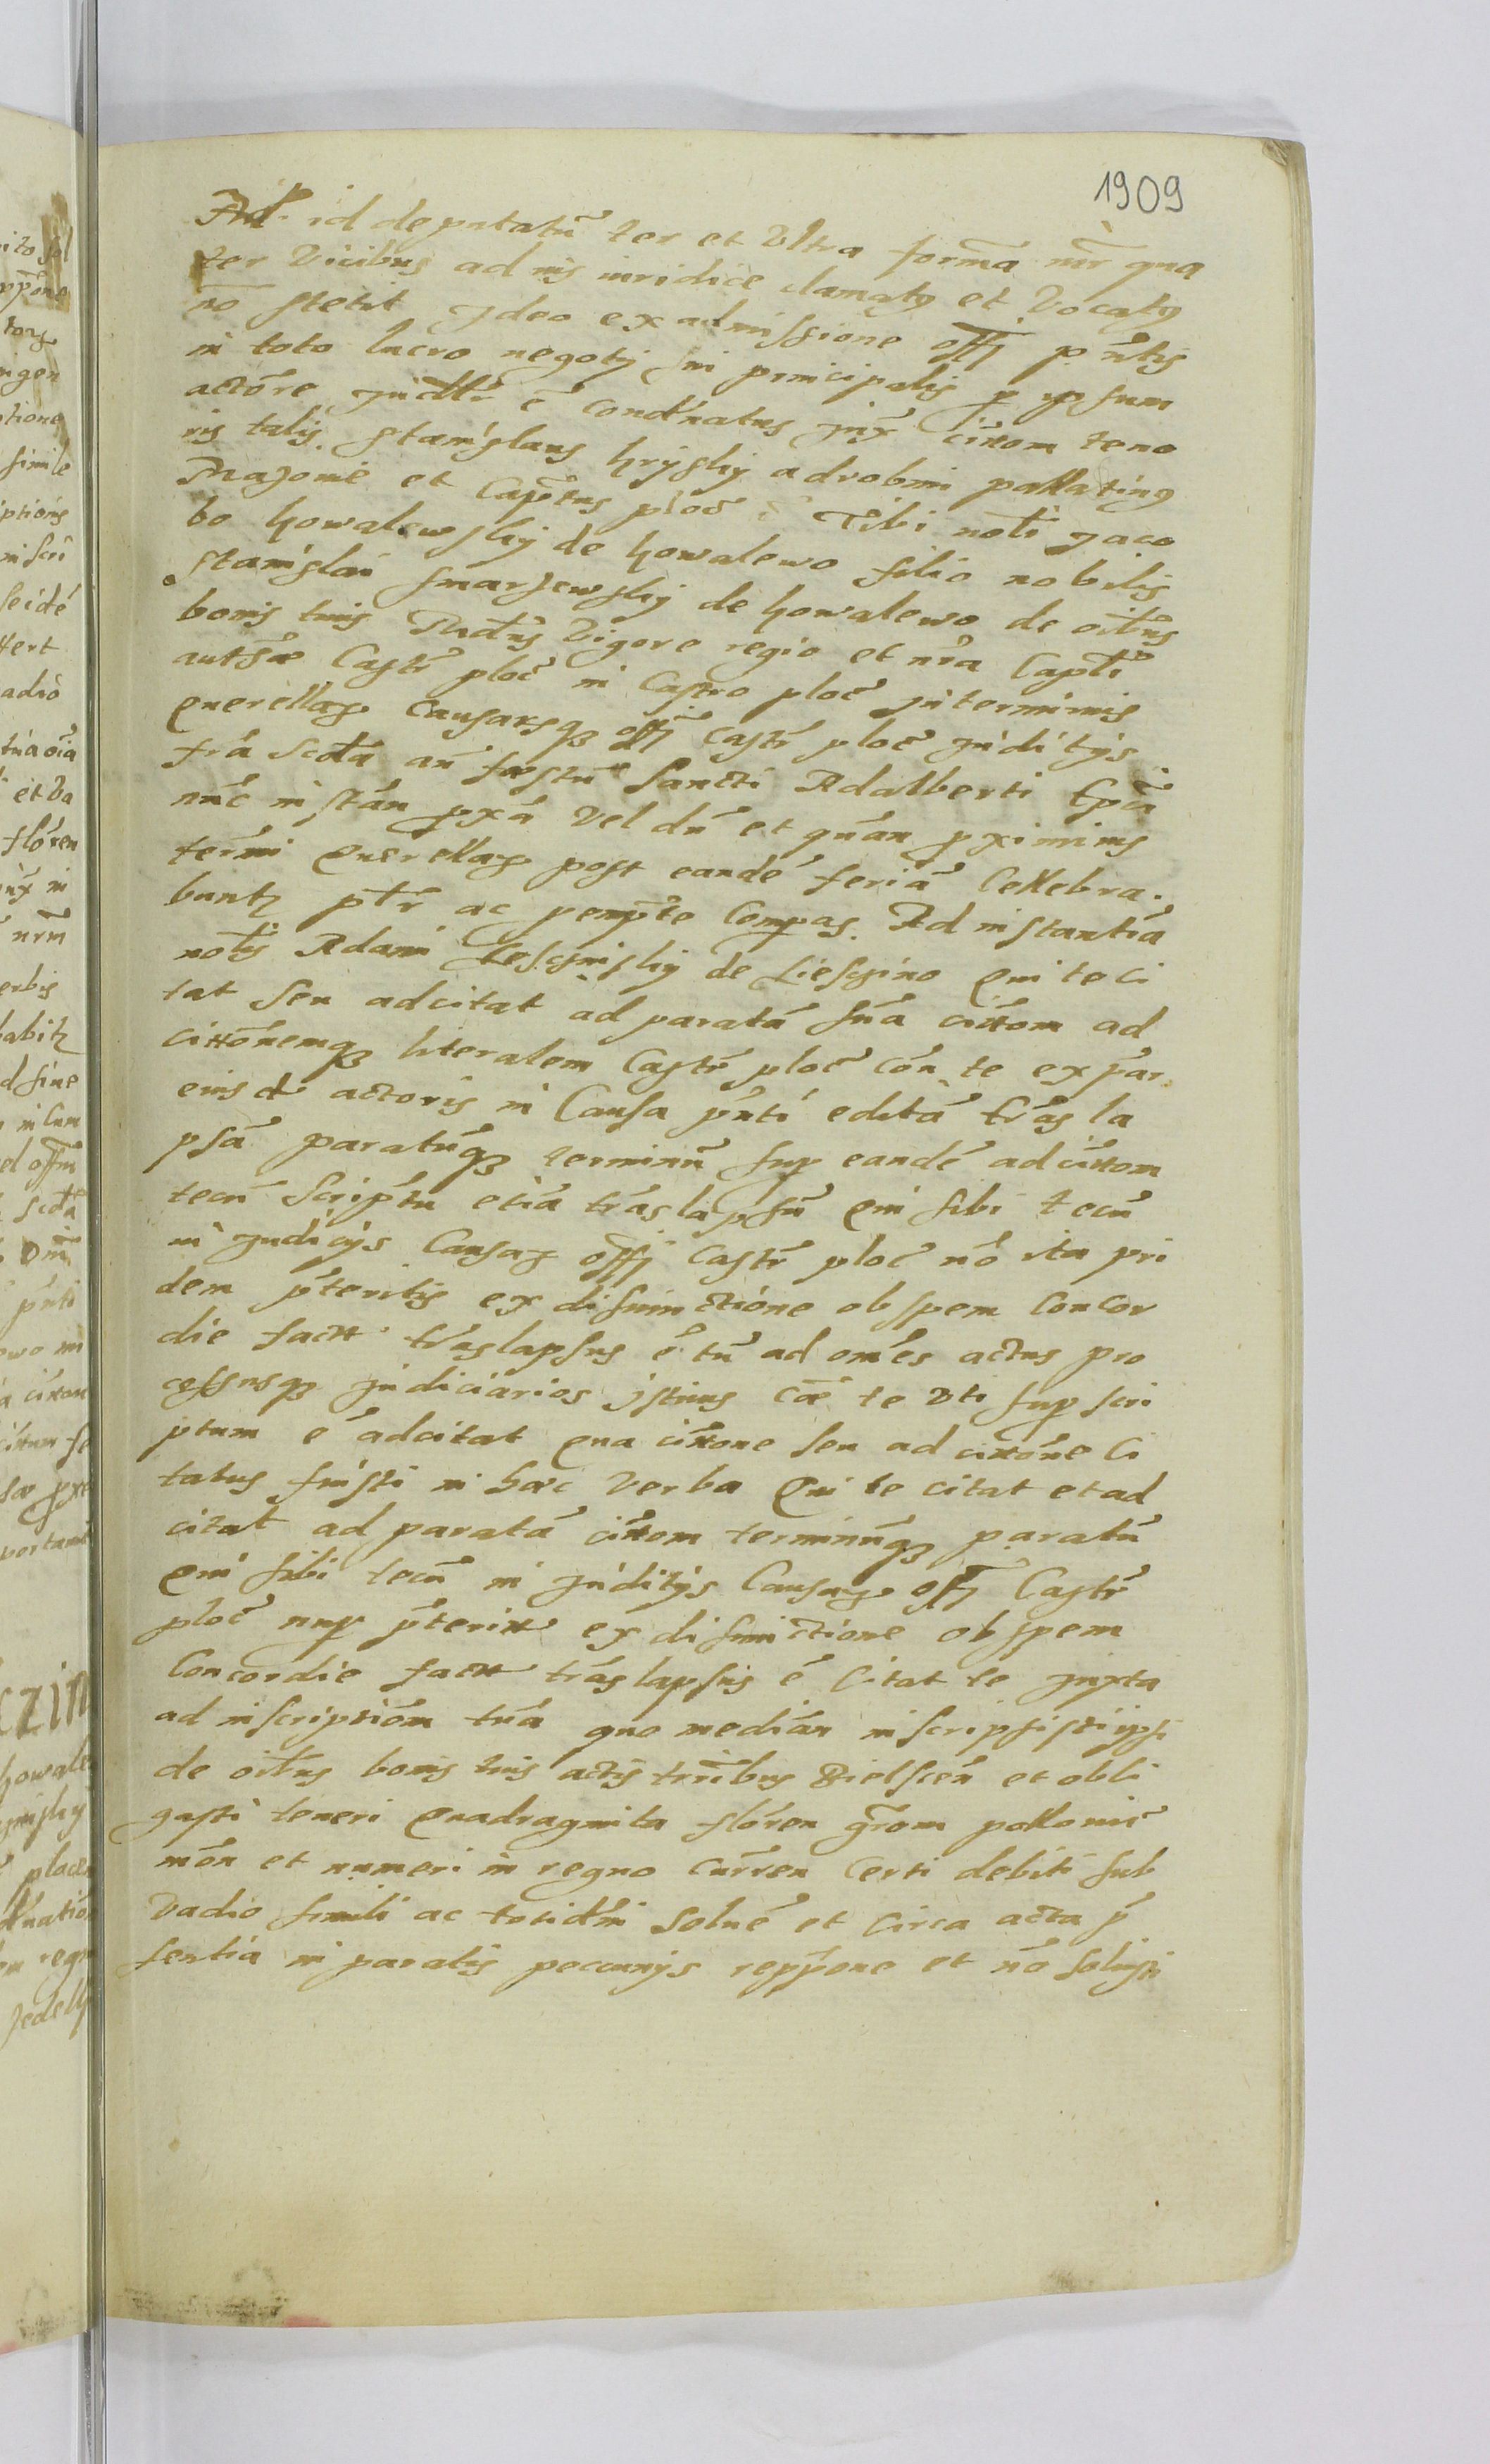 1909
Ad id deputatū ter et Vltra formā nr̄ qua
ter Vicibus ad nis iuridice clamatus et Vocatus
nō stetit Jdeo ex admissione offj p̄ntis
in toto lucro negotij sui principalis p ipsum
actōre Judltr ē Cond̄natus jux̄ citt̄om teno
ris talis Stanislaus Krÿsky a drobnin pallatinus
Mazouie et Capt̄us ploc̄ Tibi nobli Jaco
bo Kowalewsky de Kowalewo filio nobilis
Stanislai Smarzewsky de Kowalewo de oib̄us
bonis tuis Mdm̄us Vigore regio et nr̄a Captli
autt̄e Castr̄ ploc̄ in Castro ploc̄ in terminis
Querellar Causarūq3 offj Castr̄ ploc̄ Juditÿs
frā Scda an̄ fæstū Sancti Adalberti Ep̄i
nūc instān pxā Vel dū et quān pximius
term̄i Querellar post eandē feriā Cellebra.
buntr pt̄r ac pemp̄te Compas. Ad instantiā
noblis Adami Lescznisky de Liesczino Qui te ci
tat Seu adcitat ad paratā suā citt̄om ad
citt̄onemq3 literalem Castr̄ ploc̄ cōn te ex par
eiusd actoris in Causa p̄nti editā trās la
psā paratūq3 terminū sup eandē adcitt̄om
tecū Scriptū etiā trāslapsū Qui sibi tecū
in Judicÿs Causar offj Castr̄ ploc̄ nō ita pri
dem p̄teritis ex disiunctione ob spem Concor
die fact trāslapsus ē tū ad om̄es actus pro
cessusq3 Judiciarios jstius Cāe te Vti sup scri
ptum ē adcitat Qua citt̄one seu ad citt̄one Ci
tatus fuisti in hæc Verba Qui te citat et ad
citat ad paratā citt̄om terminūq3 paratū
Qui sibi tecū in Juditÿs Causar offj Castr̄
ploc̄ nup p̄teritt ex disiunctione ob spem
Concordie factt trāslapsus ē Citat te Juxta
ad inscriptiom tuā quo mediān inscripsisti ipsi
de oib̄us bonis tuis actis trr̄ibus Bielscēn et obli
gasti teneri Quadraginta flōren gr̄om pollonic̄
mōn et numeri in regno Curren Certi debiti sub
Vadio simili ac totidm̄ Soluē et Circa acta p̄
sentia in paratis pecunÿs repp̄one et nō soluisti